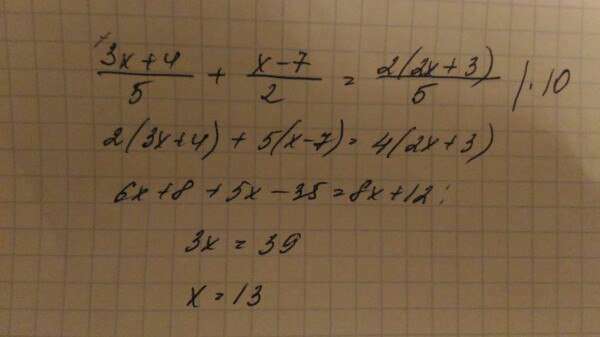 (3x+4)/5 + (x-7)/2 = 2(2x+3)/5 |·10
2(3x+4) + 5(x-7) = 4(2x+3)
6x+8+5x-35=8x+12;
3x = 39
x = 13